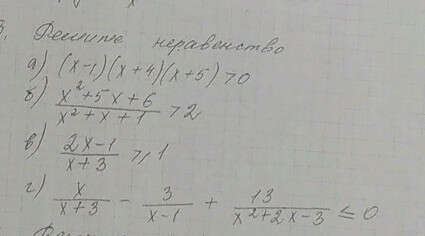 3. Решите неравенство
а) (x-1)(x+4)(x+5) >0
б) \frac{x^2+5x+6}{x^2+x+1} >2
в) \frac{2x-1}{x+3} ≥ 1
г) \frac{x}{x+3} - \frac{3}{x-1} + \frac{13}{x^2+2x-3} ≤ 0